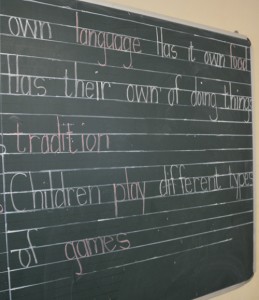 own language Has it own food
Has their own of doing things
tradition
Children play different types
of games